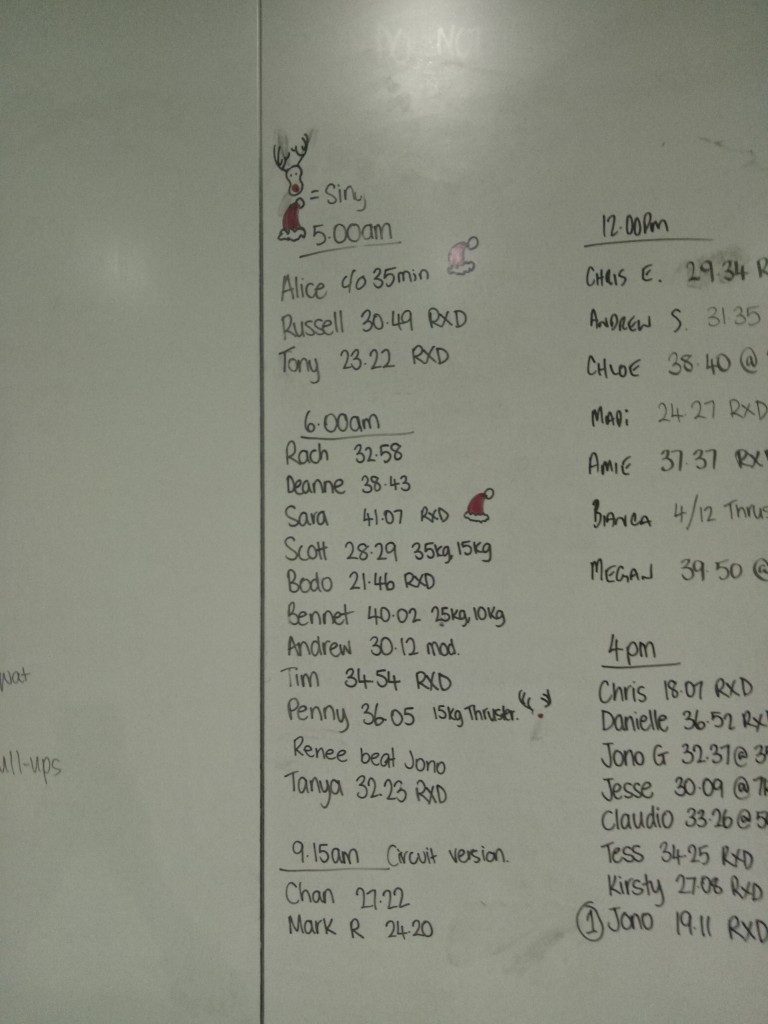 = Siny
5.00am
Alice c/o 35min
Russell 30.49 RXD
Tony 23.22 RXD
6.00am
Rach 32.58
Deanne 38.43
Sara 41.07 RXD
Scott 28.29 35kg, 15kg
Bodo 21.46 RXD
Bennet 40.02 25kg, 10kg
Andrew 30.12 mod.
Tim 34.54 RXD
Penny 36.05 15kg Thruster.
Renee beat Jono
Tanya 32.23 RXD
9.15am Circuit version.
Chan 27.22
Mark R 24.20
12.00pm
CHRIS E. 29.34 R
ANDREW S. 31.35
CHLOE 38.40 @
MADi 24.27 RXD
AMIE 37.37 RX
BIANCA 4/12 Thrus
MEGAN 39.50 @
4pm
Chris 18.07 RXD
Danielle 36.52 RX
Jono G 32.37 @ 3
Jesse 30.09 @ 7
Claudio 33.26 @ 5
Tess 34.25 RXD
Kirsty 27.08 RXD
① Jono 19.11 RXD
wat
ull-ups